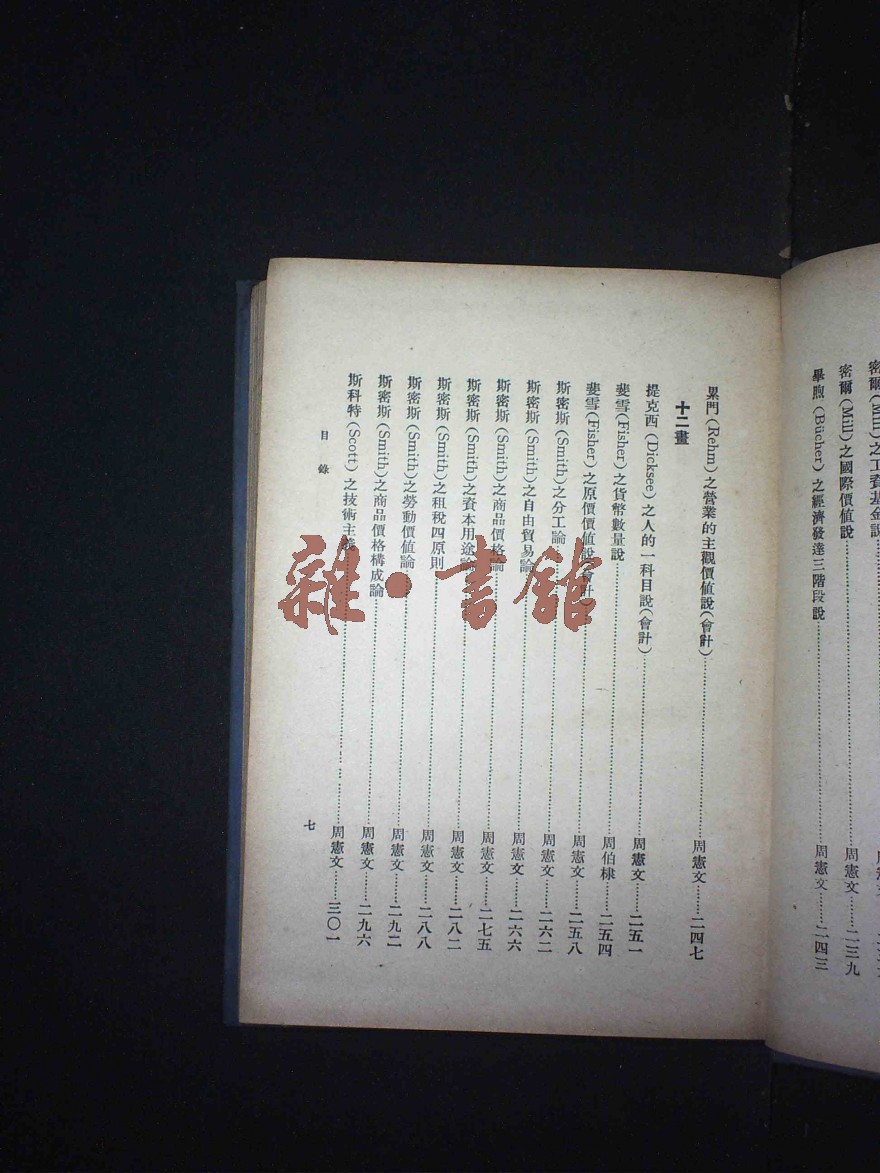 密爾(Mill)之工資基金說
密爾(Mill)之國際價値說……周憲文……二三九
畢煦(Bücher)之經濟發達三階段說……周憲文……二四三
累門(Rehm)之營業的主觀價値說(會計)……周憲文……二四七
十二畫
提克西(Dicksee)之人的一科目說(會計)……周憲文……二五一
斐雪(Fisher)之貨幣數量說……周伯棣……二五四
斐雪(Fisher)之原價價値說(會計)……周憲文……二五八
斯密斯(Smith)之分工論……周憲文……二六二
斯密斯(Smith)之自由貿易論……周憲文……二六六
斯密斯(Smith)之商品價格論……周憲文……二七五
斯密斯(Smith)之資本用途論……周憲文……二八二
斯密斯(Smith)之租稅四原則……周憲文……二八八
斯密斯(Smith)之勞動價値論……周憲文……二九二
斯密斯(Smith)之商品價格構成論……周憲文……二九六
斯科特(Scott)之技術主義……周憲文……三〇一
目錄
七
雜·書館